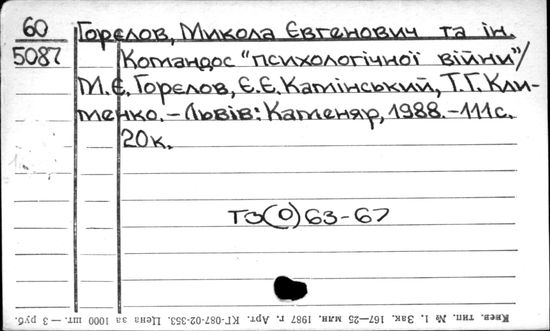 60
5087
Горєлов, Микола Євгенович та ін.
Командос "психологічної війни"/
М.Є. Горєлов, Є.Є. Камінський, Т.Г. Кли-
менко. – Львів: Каменяр, 1988. – 111с.
20к.
Т3(0)63-67
Киев. тип. № 1. Зак. 167—25 млн. 1987 г. Арт. КГ-087-02-353. Цена за 1000 шт. — 3 руб.